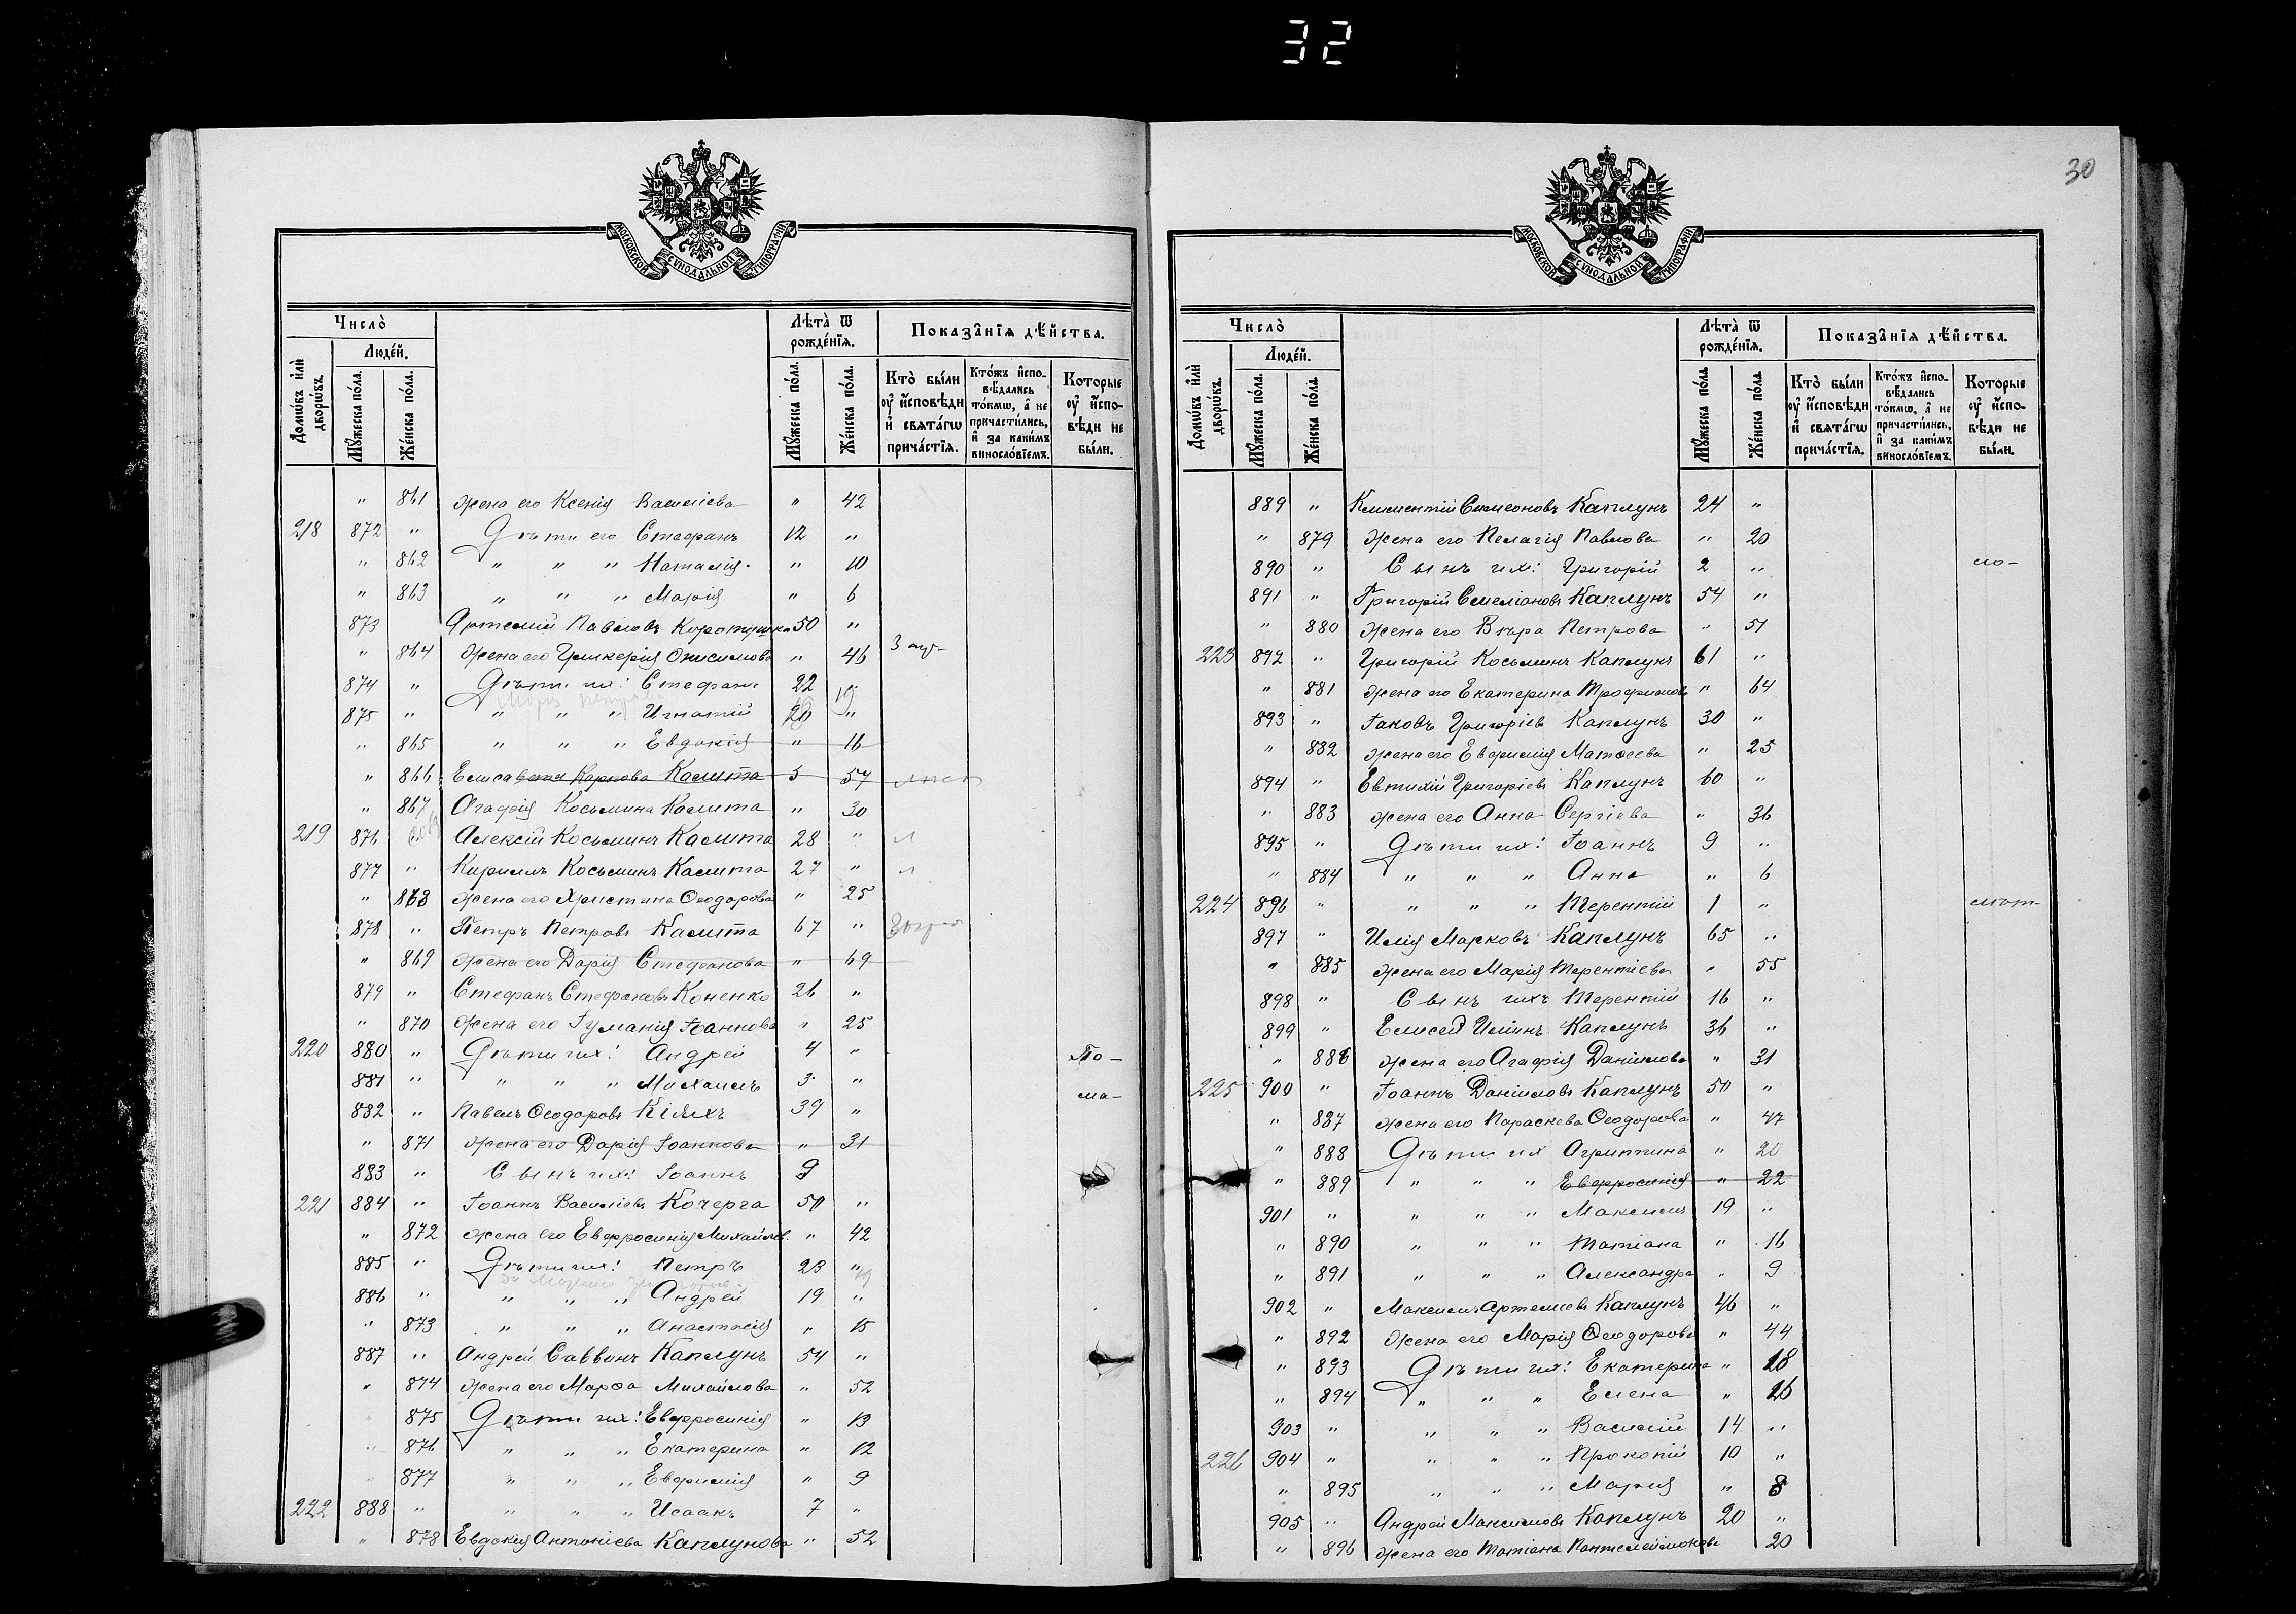 32
МОСКОВСКОЙ СѴНОДАЛЬНОЙ ТИПОГРАФІИ
Число̀
Лѣта̀ ѿ рожде́нїѧ.
Показа̑нїѧ дѣ́йства.
Людей.
Домѡ́въ и҆лѝ дворѡ́въ.
Мꙋ́жеска по́ла.
Же́нска по́ла.
Мꙋ́жеска по́ла.
Же́нска по́ла.
Кто̀ бы́ли ᲂу҆ и҆́сповѣди и҆ свѧта́гѡ прича́стїѧ.
Кто́жъ и҆спо­вѣ́дались то́кмѡ, а҆ не причасти́лись, и҆ за каки́мъ винослóвїемъ.
Которые ᲂу҆ и҆́спо­вѣди не бы́ли.
" 861 жена его Ксенія Василіева " 42
218 872 " Дѣти его Стефанъ 12 "
" 862 " " " Наталія " 10
" 863 " " " Марія " 6
873 Артемій Павловъ Коротушка 50 "
" 864 жена его Гликерія Онисимова " 46
874 " Дѣти ихъ: Стефанъ 22
875 " " " " Игнатій 20 "
" 865 " " " Евдокія " 16
" 866 Елисавета Карпова Калита 57
" 867 Агафія Косьмина Калита " 30
219 876 Алексій Косьминъ Калита 28 "
877 " Кириллъ Косьминъ Калита 27 "
" 868 жена его Христина Ѳеодорова " 25
878 " Петръ Петровъ Калита 67 "
" 869 жена его Дарія Стефанова " 69
879 " Стефанъ Стефановъ Коненко 26 "
" 870 жена его Іуліанія Іоаннова " 25
220 880 " Дѣти ихъ: Андрей 4 "
881 " " " " Михаилъ 3 "
882 " Павелъ Ѳеодоровъ 39 "
" 871 жена его Дарія Іоаннова " 31
883 " Сынъ ихъ: Іоаннъ 9
221 884 " Іоаннъ Василіевъ Кочерга 50 "
" 872 жена его Евфросинія Михайлов. " 42
885 " Дѣти ихъ: Петръ 23 "
886 " " " " Андрей 19 "
" 873 " " " Анастасія " 15
887 " Андрей Саввинъ Каплунъ 54 "
" 874 жена его Марѳа Михайлова " 52
875 Дѣти ихъ: Евфросинія " 13
876 " " " Екатерина " 12
877 " " " Евфимія " 9
222 888 " " " " Исаакъ 7 "
" 878 Евдокія Антоніева Каплунова " 52
30
МОСКОВСКОЙ СѴНОДАЛЬНОЙ ТИПОГРАФІИ
Число̀
Лѣта̀ ѿ рожде́нїѧ.
Показа̑нїѧ дѣ́йства.
Людей.
Домѡ́въ и҆лѝ дворѡ́въ.
Мꙋ́жеска по́ла.
Же́нска по́ла.
Мꙋ́жеска по́ла.
Же́нска по́ла.
Кто̀ бы́ли ᲂу҆ и҆́сповѣди и҆ свѧта́гѡ прича́стїѧ.
Кто́жъ и҆спо­вѣ́дались то́кмѡ, а҆ не причасти́лись, и҆ за каки́мъ винослóвїемъ.
Которые ᲂу҆ и҆́спо­вѣди не бы́ли.
889 " Климентій Симеоновъ Каплунъ 24 "
" 879 жена его Пелагія Павлова " 20
890 " Сынъ ихъ: Григорій 2 "
891 " Григорій Емеліановъ Каплунъ 54 "
" 880 жена его Вѣра Петрова " 51
223 892 " Григорій Косьминъ Каплунъ 61 "
" 881 жена его Екатерина Трофимова " 64
893 " Іаковъ Григоріевъ Каплунъ 30 "
" 882 жена его Евфимія Матѳеева " 25
894 " Евтихій Григоріевъ Каплунъ 60 "
" 883 жена его Анна Сергіева " 36
895 " Дѣти ихъ: Іоаннъ 9 "
" 884 " " " Анна " 6
224 896 " " " " Терентій 1 "
897 " Илія Марковъ Каплунъ 65 "
" 885 жена его Марія Терентіева " 55
898 " Сынъ ихъ Терентій 16 "
899 " Елисей Иліинъ Каплунъ 36 "
" 886 жена его Агафія Даніилова " 31
225 900 " Іоаннъ Данииловъ Каплунъ 50 "
" 887 жена его Параскева Ѳеодорова " 47
" 888 Дѣти ихъ Агриппина " 20
" 889 " " " Евфросинія " 22
901 " " " " Максимъ 19 "
" 890 " " " Татіана " 16
" 891 " " " Александра " 9
902 " Максимъ Артеміевъ Каплунъ 46 "
" 892 жена его Марія Ѳеодорова " 44
" 893 Дѣти ихъ: Екатерина " 18
" 894 " " " Елена " 16
903 " " " " Василій 14 "
226 904 " " " " Прокопій 10 "
" 895 " " " Марія " 8
905 " Андрей Максимовъ Каплунъ 20 "
" 896 жена его Татіана Пантелеймонова 20